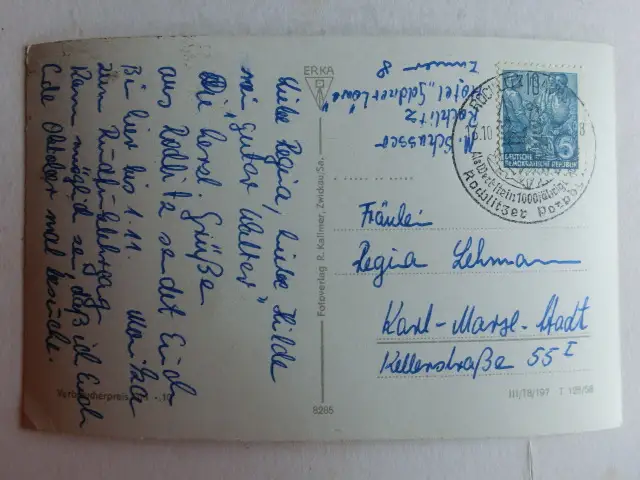 Liebe Regina, liebe Hilde
sei "guter Walter"
Die herzl. Grüße
aus Rochlitz sendet Euch
Bin hier bis 1.11.
zum
Kann möglich sein, daß ich Euch
Ende Oktober mal besuche.
ERKA
Fotoverlag R. Kallmer, Zwickau/Sa.
8285
Verbraucherpreis
Rochlitz
Hotel "Goldner Löwe"
Zimmer 8
DEUTSCHE
DEMOKRATISCHE REPUBLIK
5
16.10
Als Werkstein 1000jährig
Rochlitzer Porphyr
Fräulein
Regina Lehmann
Karl-Marx-Stadt
Kellerstraße 55 I
III/18/197 T 125/58